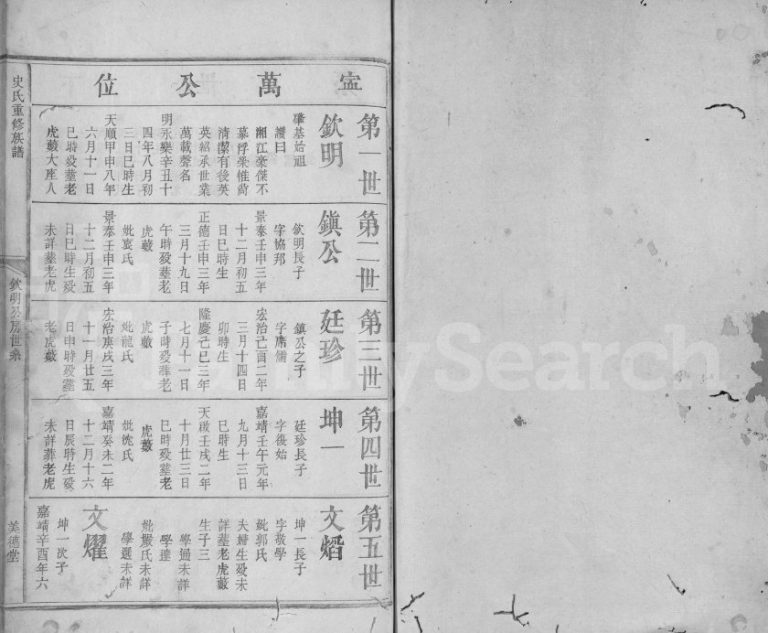 史氏重修族譜
欽明公房世系
美德堂
宝萬公位
第一世
欽明
肇基始祖
讚曰
湘江豪傑不
慕浮榮惟尚
清潔有後英
英紹承世業
萬載聲名
明永樂辛丑十
四年八月初
三日巳時生
天順甲申八年
六月十一日
巳時殁墓老
虎藪大座人
第二世
鎮公
欽明長子
字協邦
景泰壬申三年
十二月初五
日巳時生
正德壬申三年
三月十九日
午時殁墓老
虎藪
妣袁氏
景泰壬申三年
十二月初五
日巳時生殁
未詳墓老虎
第三世
廷珍
鎮公之子
字席儒
宏治己酉二年
三月十四日
卯時生
隆慶己巳三年
七月十一日
子時殁葬老
虎藪
妣龍氏
宏治庚戌三年
十一月廿五
日申時殁墓
老虎藪
第四世
坤一
廷珍長子
字復始
嘉靖壬午元年
九月十三日
巳時生
天啟壬戌二年
十月廿三日
巳時殁墓老
虎藪
妣沈氏
嘉靖癸未二年
十二月十六
日辰時生殁
未詳葬老虎
第五世
文㷮
坤一長子
字敬學
妣郭氏
夫婦生殁未
詳墓老虎藪
生子三
學通未詳
學達
妣嚴氏未詳
學遷未詳
文燿
坤一次子
嘉靖辛酉年六
FamilySearch